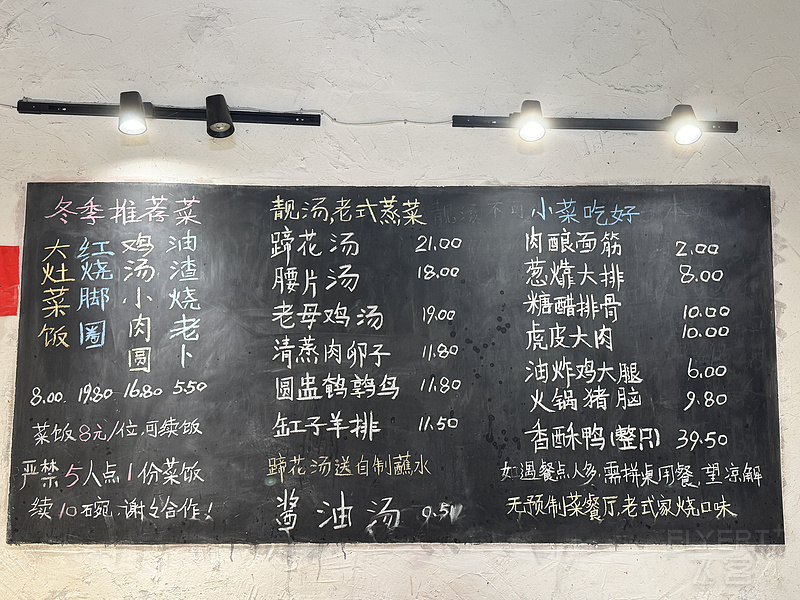 冬季推荐菜
大灶菜饭
红烧脚圈
鸡汤小肉圆
油渣烧老卜
8.00 19.80 16.80 5.50
菜饭8元/位,可续饭
严禁5人点1份菜饭
续10碗,谢谢合作!
靓汤,老式蒸菜
蹄花汤 21.00
腰片汤 18.00
老母鸡汤 19.00
清蒸肉卵子 11.80
圆盅鹌鹑鸟 11.80
缸子羊排 11.50
蹄花汤送自制蘸水
酱油汤 0.51
小菜吃好
肉酿面筋 2.00
葱㸆大排 8.00
糖醋排骨 10.00
虎皮大肉 10.00
油炸鸡大腿 6.00
火锅猪脑 9.80
香酥鸭(整只) 39.50
如遇餐点人多,需拼桌用餐,望凉解
无预制菜餐厅,老式家烧口味
FLYERT